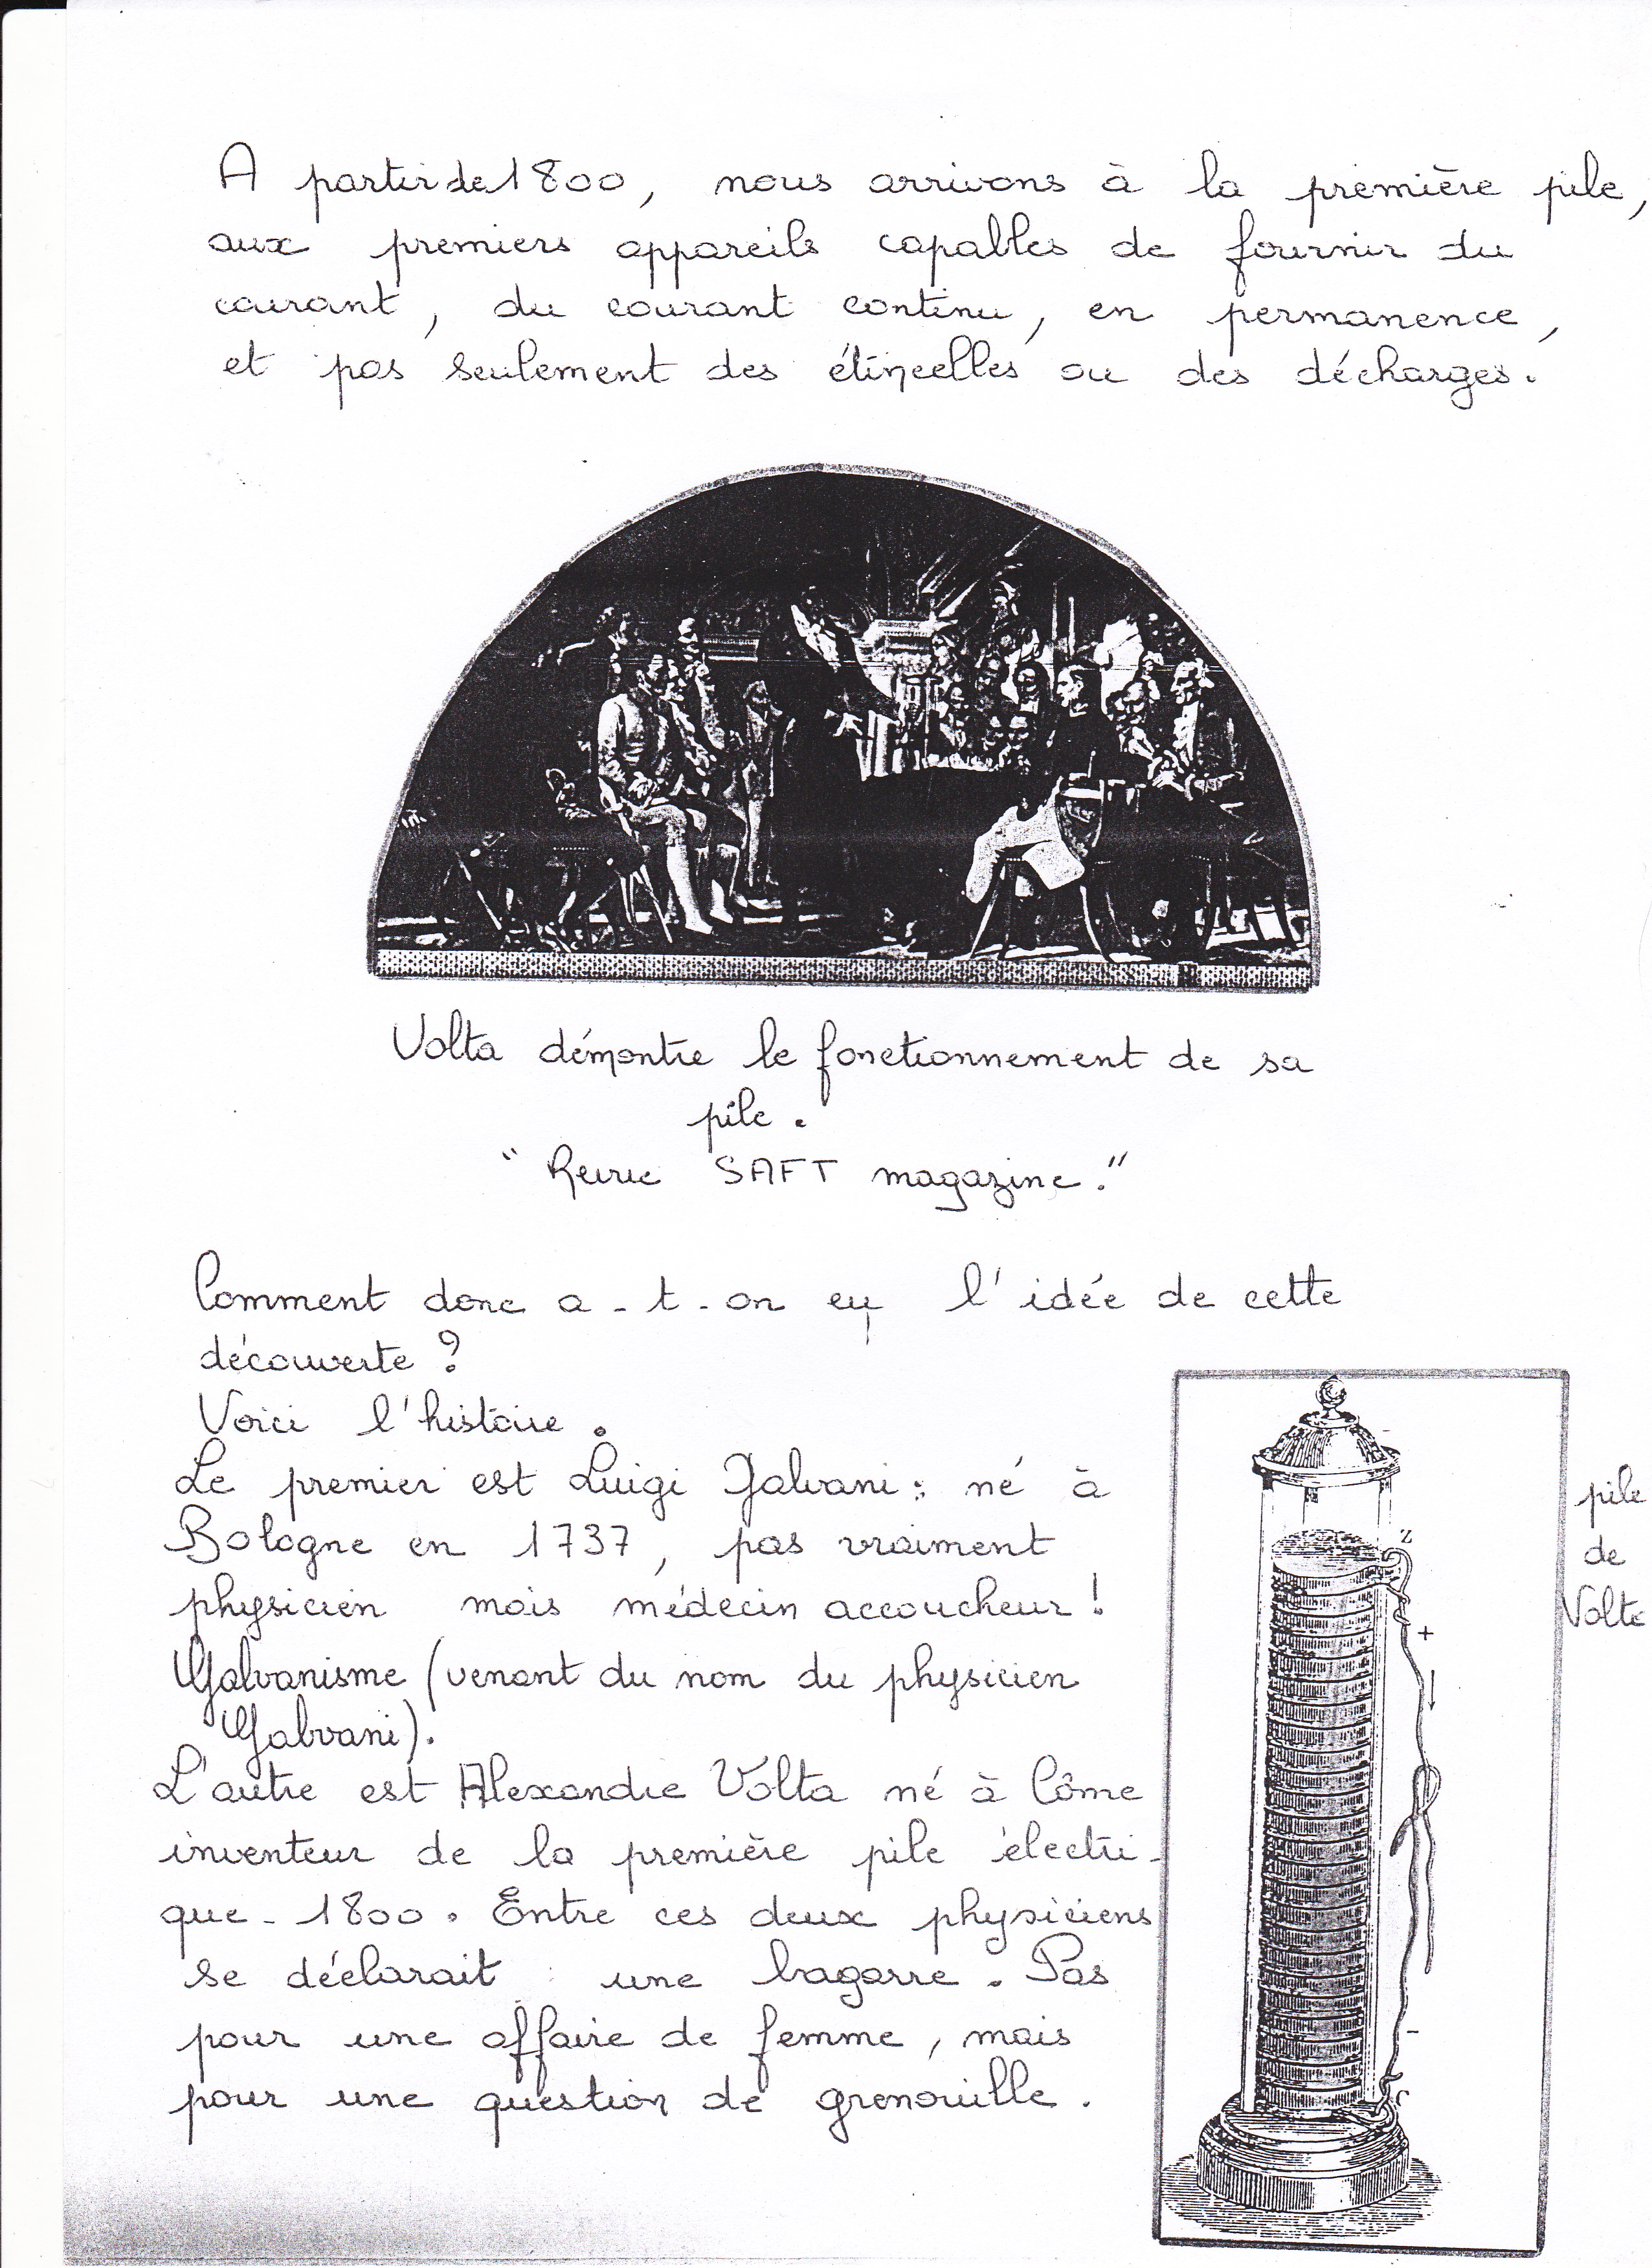 A partir de 1800, nous arrivons à la première pile,
aux premiers appareils capables de fournir du
courant, du courant continu, en permanence,
et pas seulement des étincelles ou des décharges.
Volta démontre le fonctionnement de sa
pile.
"Revue SAFT magazine."
Comment donc a-t-on eu l'idée de cette
découverte ?
Voici l'histoire.
Le premier est Luigi Galvani : né à
Bologne en 1737, pas vraiment
physicien mais médecin accoucheur !
Galvanisme (venant du nom du physicien
Galvani).
L'autre est Alexandre Volta né à Côme
inventeur de la première pile électri-
que - 1800. Entre ces deux physiciens
se déclarait une bagarre. Pas
pour une affaire de femme, mais
pour une question de grenouille.
pile
de
Volte
Z
+
-
C